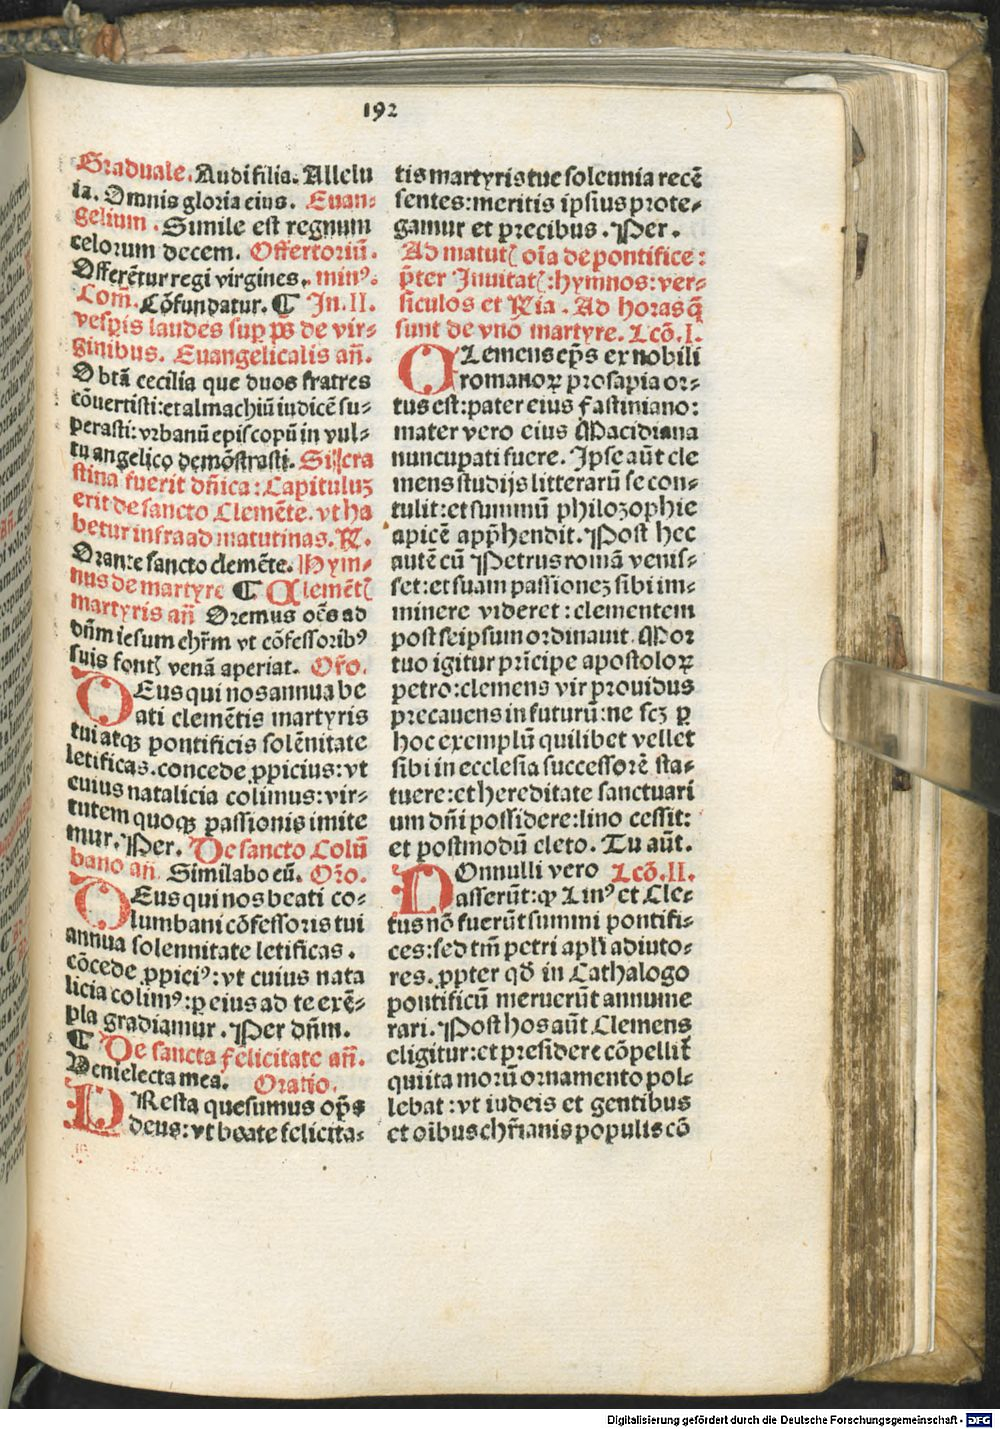 192
Graduale. Audi filia. Allelu
ia. Omnis gloria eius. Euan⸗
gelium. Simile est regnum
celorum decem. Offertoriū.
Offerētur regi virgines. minꝰ.
Com̄. Cōfundatur. ¶ In.II.
vesꝑis laudes suꝑ p̄s de vir⸗
ginibus. Euangelicalis añ.
O btā cecilia que duos fratres
cōuertisti: et almachiū iudicē su⸗
perasti: vrbanū episcopū in vul⸗
tu angelico demōstrasti. Si cra
stina fuerit dñica: Capituluꝫ
erit de sancto Clemēte. vt ha
betur infra ad matutinas. R.
Orante sancto clemēte. Hym⸗
nus de martyre ¶ Clemētꝭ
martyris añ Oremus oēs ad
dñm iesum chr̄m vt cōfessoribꝰ
suis fontꝭ venā aperiat. Or̄o.
DEus qui nos annua be
ati clemētis martyris
tui atqꝫ pontificis solēnitate
letificas. concede ꝓpicius: vt
cuius natalicia colimus: vir⸗
tutem quoqꝫ passionis imite
mur. Per. De sancto Colū
bano añ. Similabo eū. Or̄o.
DEus qui nos beati co⸗
lumbani cōfessoris tui
annua solennitate letificas.
cōcede ꝓpiciꝰ: vt cuius nata
licia colimꝰ: ꝑ eius ad te exē⸗
pla gradiamur. Per dñm.
¶ De sancta felicitate añ.
Veni electa mea. Oratio.
PResta quesumus op̄s
deus: vt beate felicita⸗
tis martyris tue solennia recē
sentes: meritis ipsius prote⸗
gamur et precibus. Per.
Ad matutꝭ oīa de pontifice:
p̄ter Inuitatꝭ: hymnos: ver⸗
siculos et Ria. Ad horas q̄
sunt de vno martyre. Lcō.I.
CLemens ep̄s ex nobili
romanoꝝ prosapia or⸗
tus est: pater eius fastiniano:
mater vero eius Macidiana
nuncupati fuere. Ipse aūt cle
mens studijs litterarū se con⸗
tulit: et summū philozophie
apicē app̄hendit. Post hec
autē cū Petrus romā venis⸗
set: et suam passioneꝫ sibi im⸗
minere videret: clementem
post seipsum ordinauit. Mor
tuo igitur pr̄incipe apostoloꝝ
petro: clemens vir prouidus
precauens in futurū: ne scꝫ ꝑ
hoc exemplū quilibet vellet
sibi in ecclesia successorē sta⸗
tuere: et hereditate sanctuari
um dñi possidere: lino cessit:
et postmodū cleto. Tu aūt.
NOnnulli vero Lcō.II.
asserūt: ꝙ Linꝰ et Cle⸗
tus nō fuerūt summi pontifi⸗
ces: sed tm̄ petri apl̄i adiuto⸗
res. ꝓpter qd̄ in Cathalogo
pontificū meruerūt annume
rari. Post hos aūt Clemens
eligitur: et presidere cōpellit̄
qui ita morū ornamento pol⸗
lebat: vt iudeis et gentibus
et oibus chr̄ianis populis cō
Digitalisierung gefördert durch die Deutsche Forschungsgemeinschaft - DFG